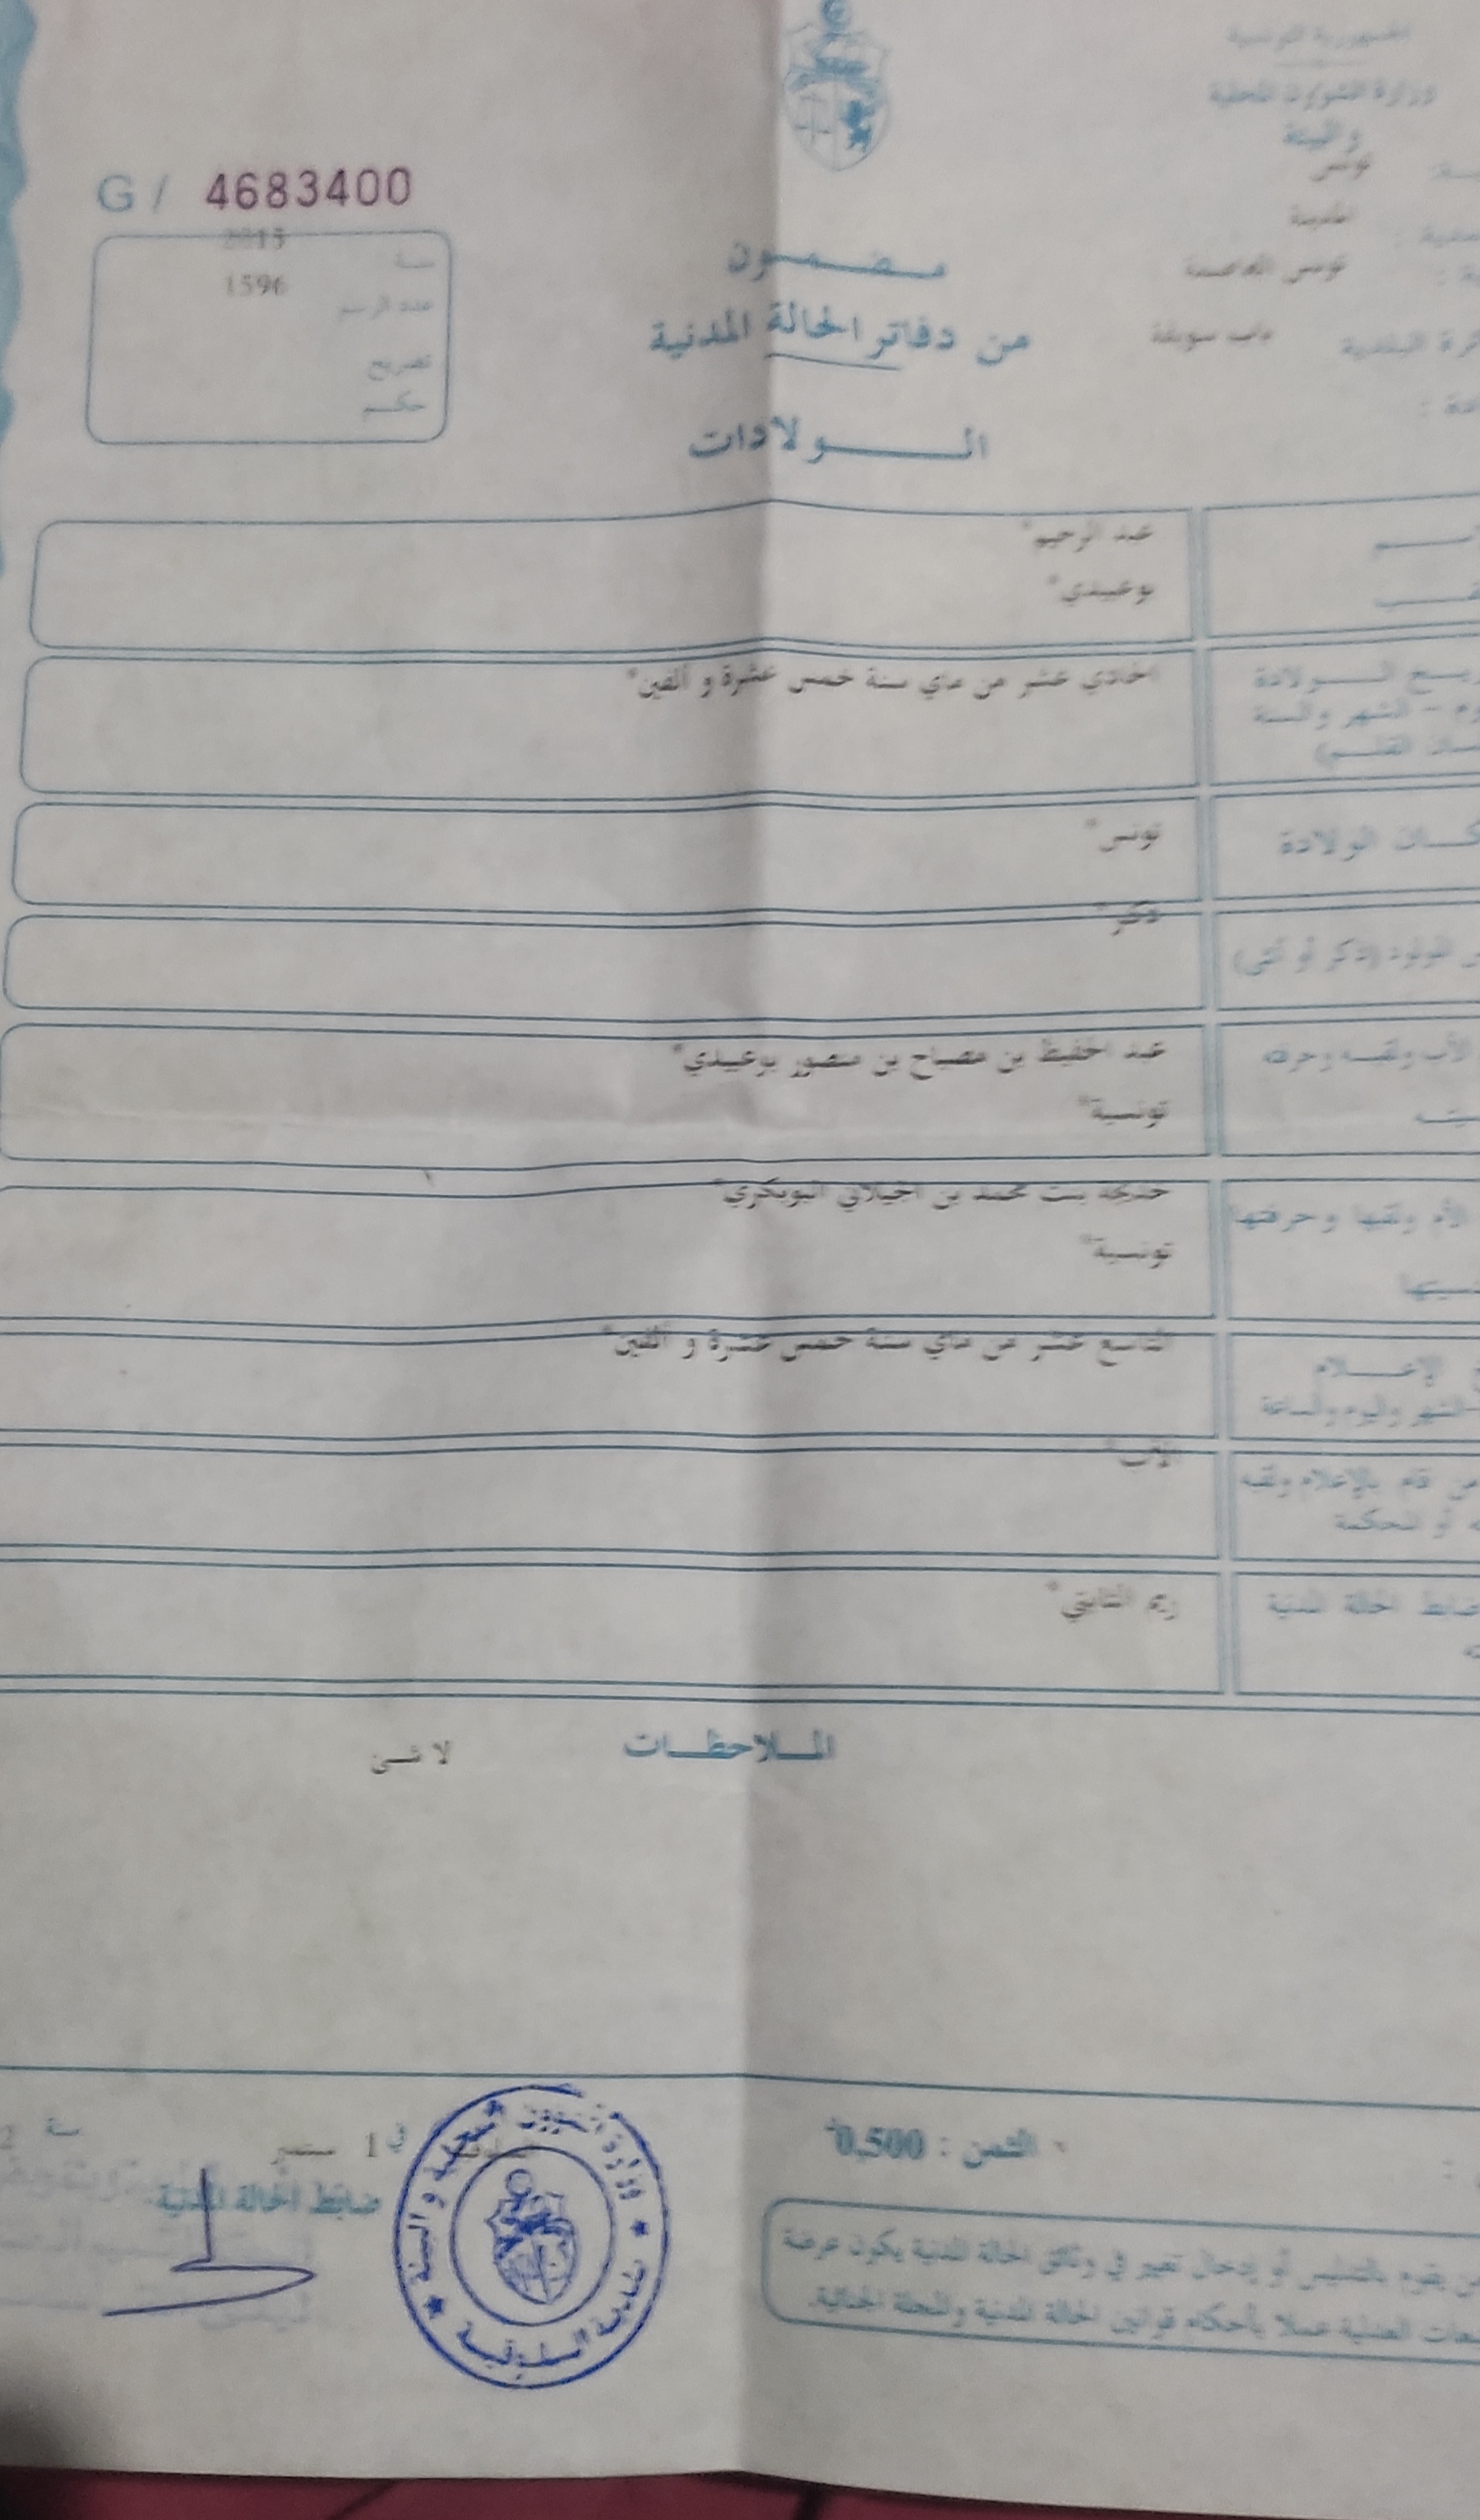 الجمهورية التونسية
وزارة الشؤون المحلية
والبيئة
تونس
المدينة
تونس العاصمة
باب سويقة
G / 4683400
سنة 2015
عدد الرسم 1596
تصريح
حكم
مضمون
من دفاتر الحالة المدنية
الولادات
عبد الرحيم*
بوعبيدي*
الولادة
الشهر والسنة
الحادي عشر من ماي سنة خمس عشرة و ألفين*
الولادة
تونس*
المولود (ذكر أو أنثى)
ذكر*
الأب ولقبه وحرفته
عبد الحفيظ بن مصباح بن منصور بوعبيدي*
تونسية*
الأم ولقبها وحرفتها
خديجة بنت محمد بن الجيلاني البوبكري*
تونسية*
الإعلام
الشهر واليوم والساعة
التاسع عشر من ماي سنة خمس عشرة و ألفين*
من قام بالإعلام ولقبه
أو المحكمة
الأب*
الحالة المدنية
ريم الثابتي*
الملاحظات
لا شئ
الثمن : 0,500
في 1 سبتمبر سنة
ضابط الحالة المدنية
يقوم بالتدليس أو إدخال تغيير في وثائق الحالة المدنية يكون عرضة
العدلية عملا بأحكام قوانين الحالة المدنية والمجلة الجنائية.
وزارة الشؤون المحلية و البيئة